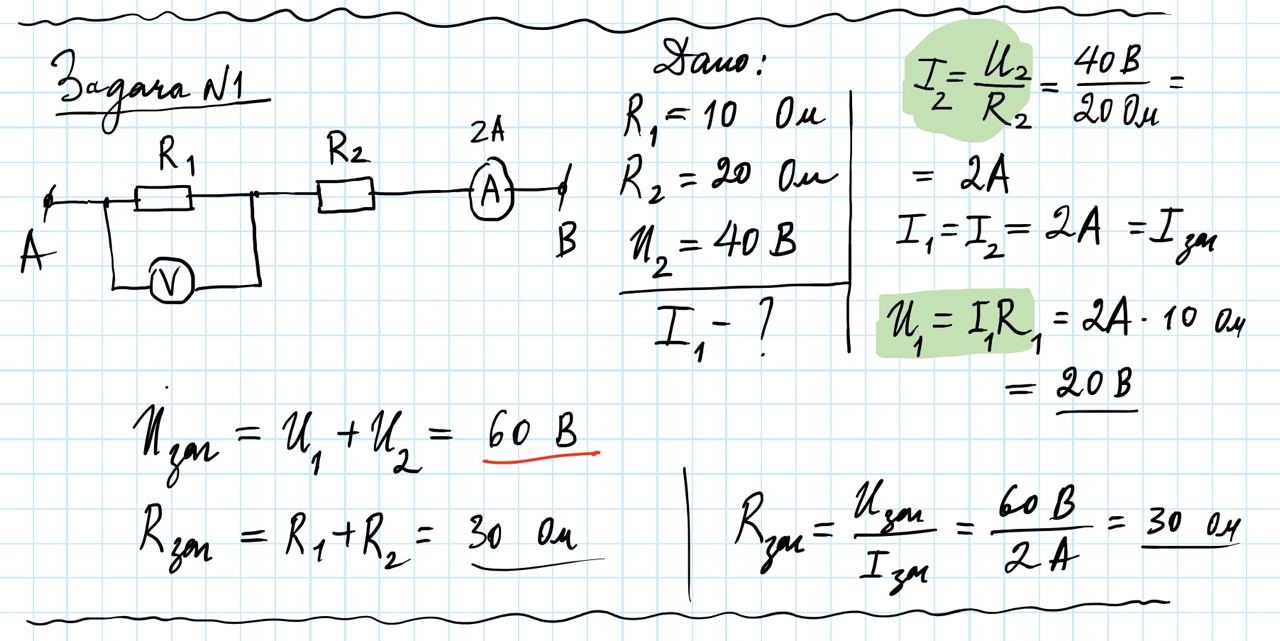 Задача N1
R₁
R₂
2A
A
V
A
B
Дано:
R₁ = 10 Ом
R₂ = 20 Ом
U₂ = 40 В
I₁ - ?
I₂ = U₂/R₂ = 40 В/20 Ом =
= 2А
I₁ = I₂ = 2А = Iзаг
U₁ = I₁R₁ = 2А · 10 Ом
= 20 В
Uзаг = U₁ + U₂ = 60 В
Rзаг = R₁ + R₂ = 30 Ом
Rзаг = Uзаг/Iзаг = 60 В/2 А = 30 Ом